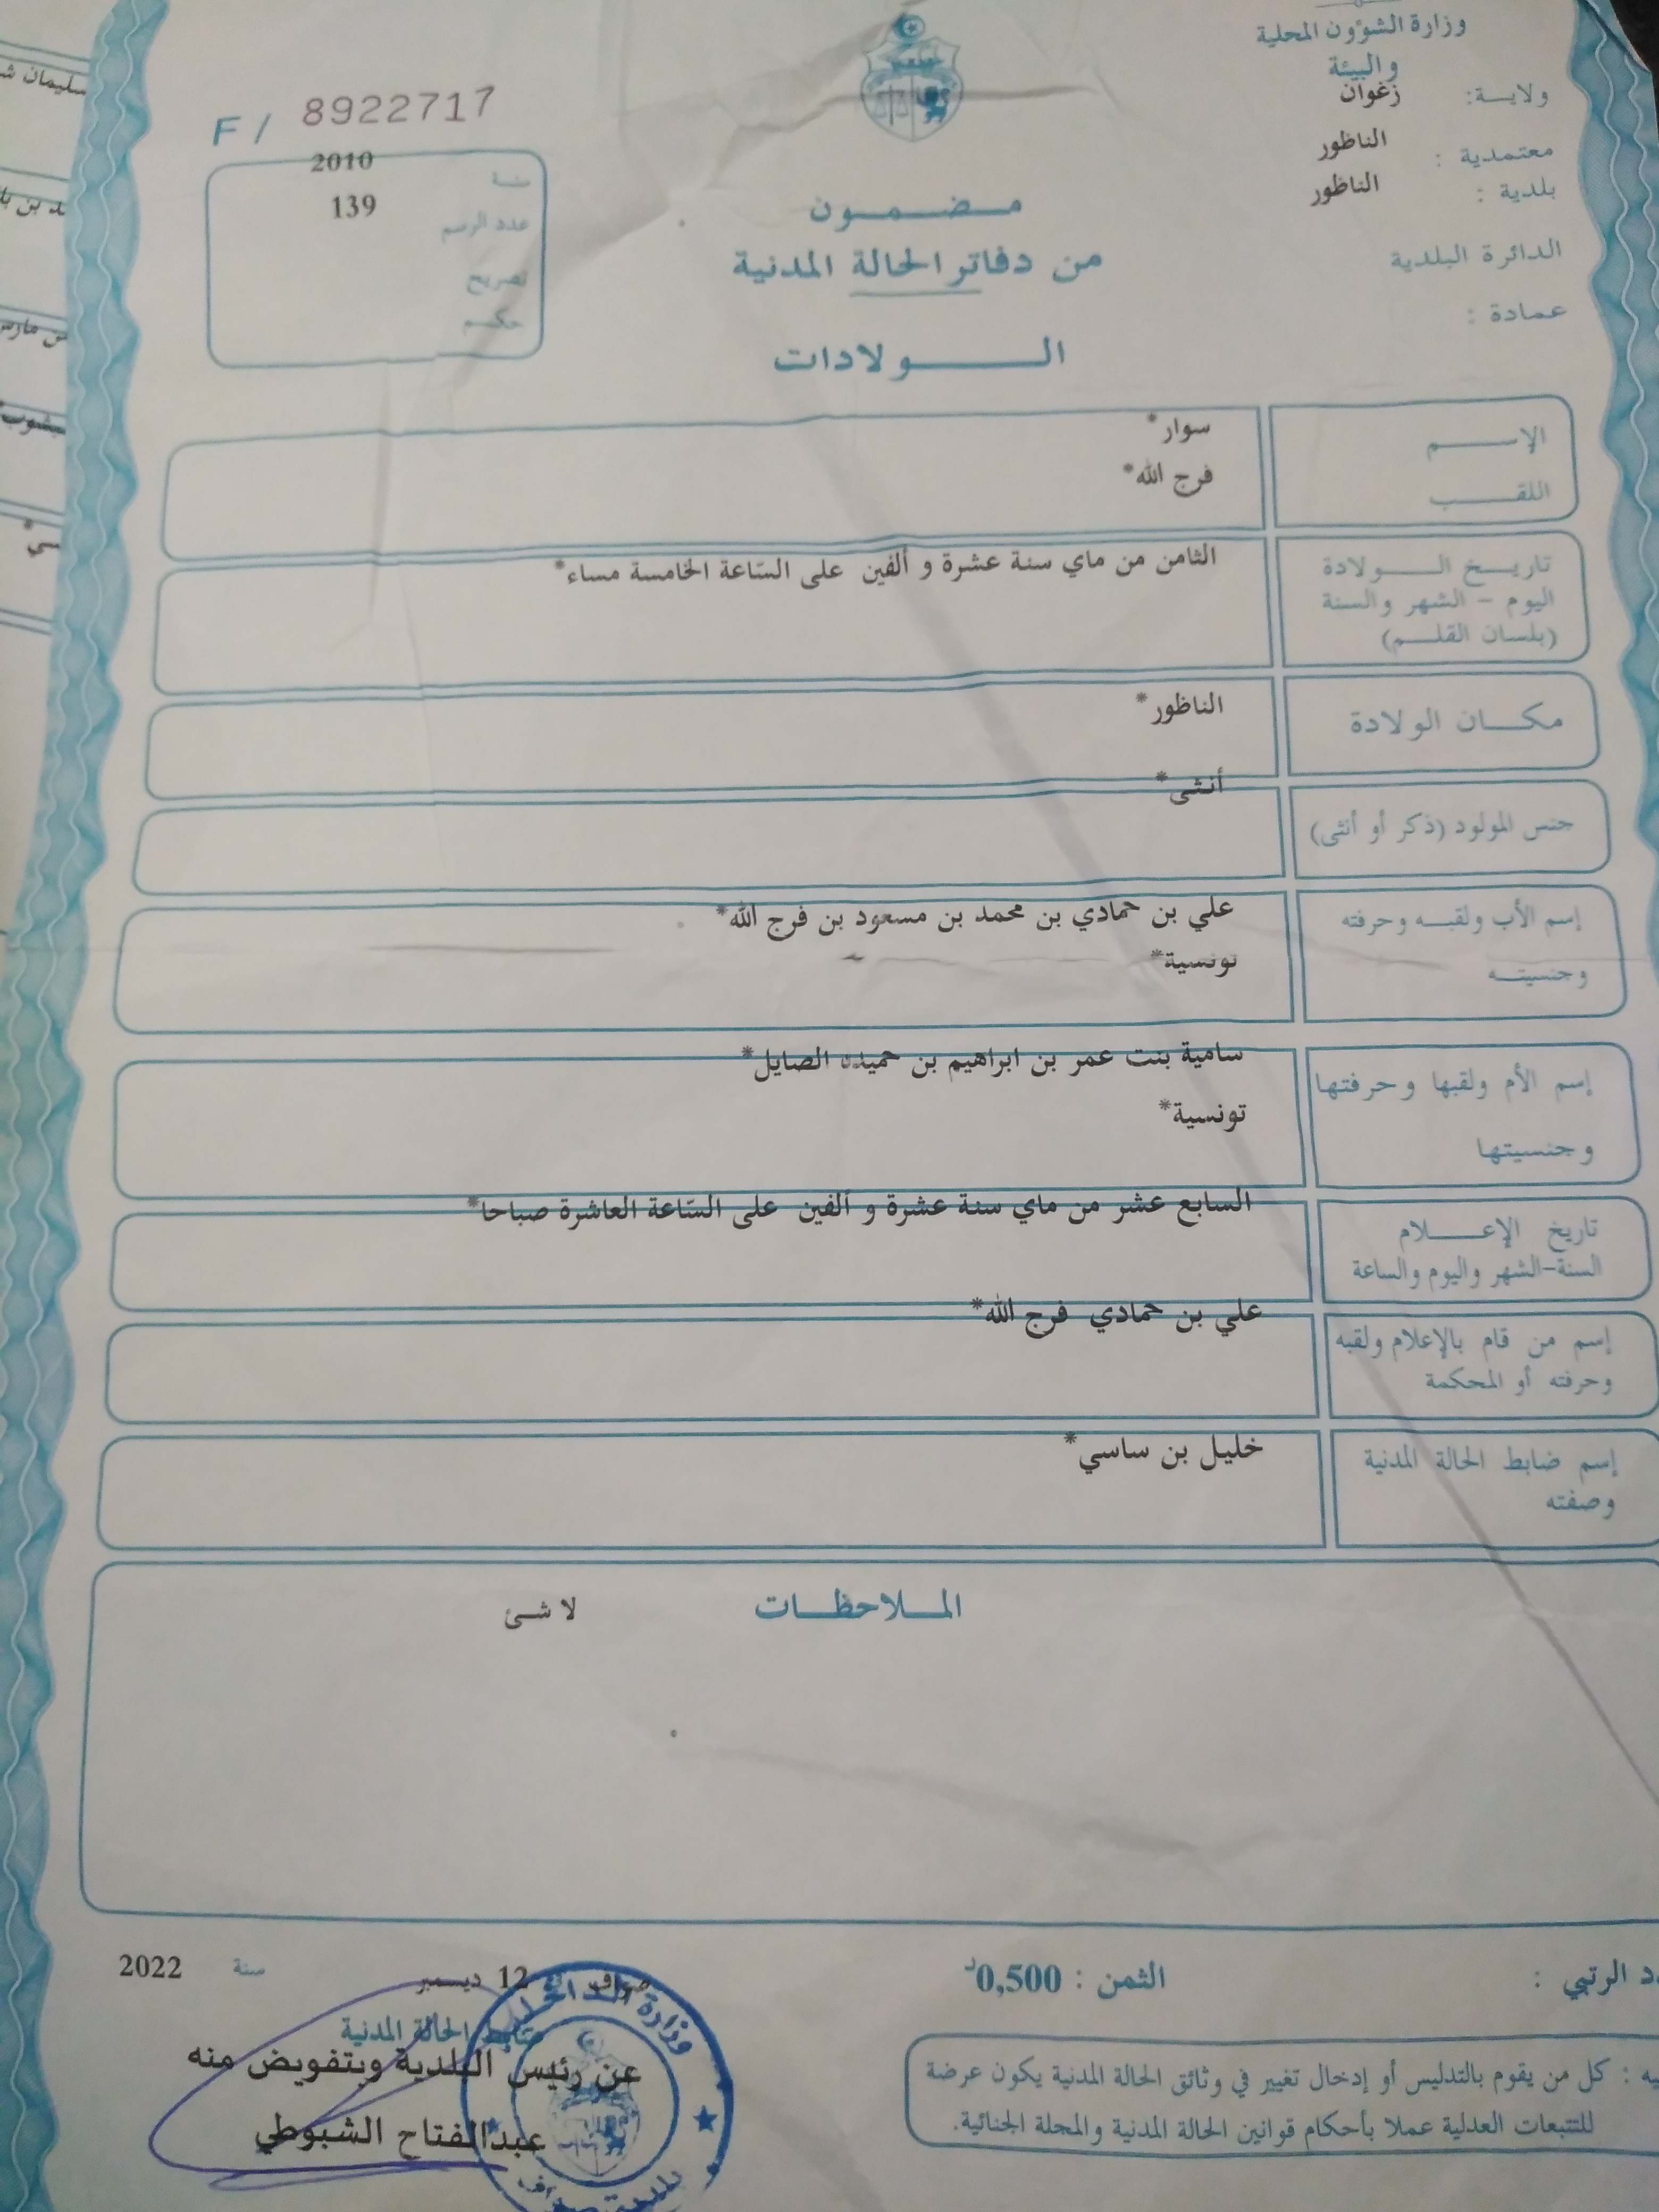 وزارة الشؤون المحلية
والبيئة
ولايــة: زغوان
معتمدية : الناظور
بلدية : الناظور
الدائرة البلدية
عمادة :
F / 8922717
سنة 2010
عدد الرسم 139
تصريح
حكم
مـضـمـون
من دفاتر الحالة المدنية
الـــولادات
الإســـم سوار*
اللقـــب فرج الله*
تاريـخ الـــولادة الثامن من ماي سنة عشرة و ألفين على السّاعة الخامسة مساء*
اليوم - الشهر والسنة
(بلسان القلـم)
مكــان الولادة الناظور*
جنس المولود (ذكر أو أنثى) أنثى*
إسم الأب ولقبـه وحرفته علي بن حمادي بن محمد بن مسعود بن فرج الله*
وجنسيتـه تونسية*
إسم الأم ولقبها وحرفتها سامية بنت عمر بن ابراهيم بن حميده الصايل*
وجنسيتها تونسية*
تاريخ الإعــلام السابع عشر من ماي سنة عشرة و ألفين على السّاعة العاشرة صباحا*
السنة-الشهر واليوم والساعة
إسم من قام بالإعلام ولقبه علي بن حمادي فرج الله*
وحرفته أو المحكمة
إسم ضابط الحالة المدنية خليل بن ساسي*
وصفته
المـلاحظـات لا شئ
الرتبي :
الثمن : 0,500د
صواف في 12 ديسمبر سنة 2022
ضابط الحالة المدنية
عن رئيس البلدية وبتفويض منه
عبدالفتاح الشبوطي
وزارة الداخلية
بلدية صواف
كل من يقوم بالتدليس أو إدخال تغيير في وثائق الحالة المدنية يكون عرضة
للتتبعات العدلية عملا بأحكام قوانين الحالة المدنية والمجلة الجنائية.